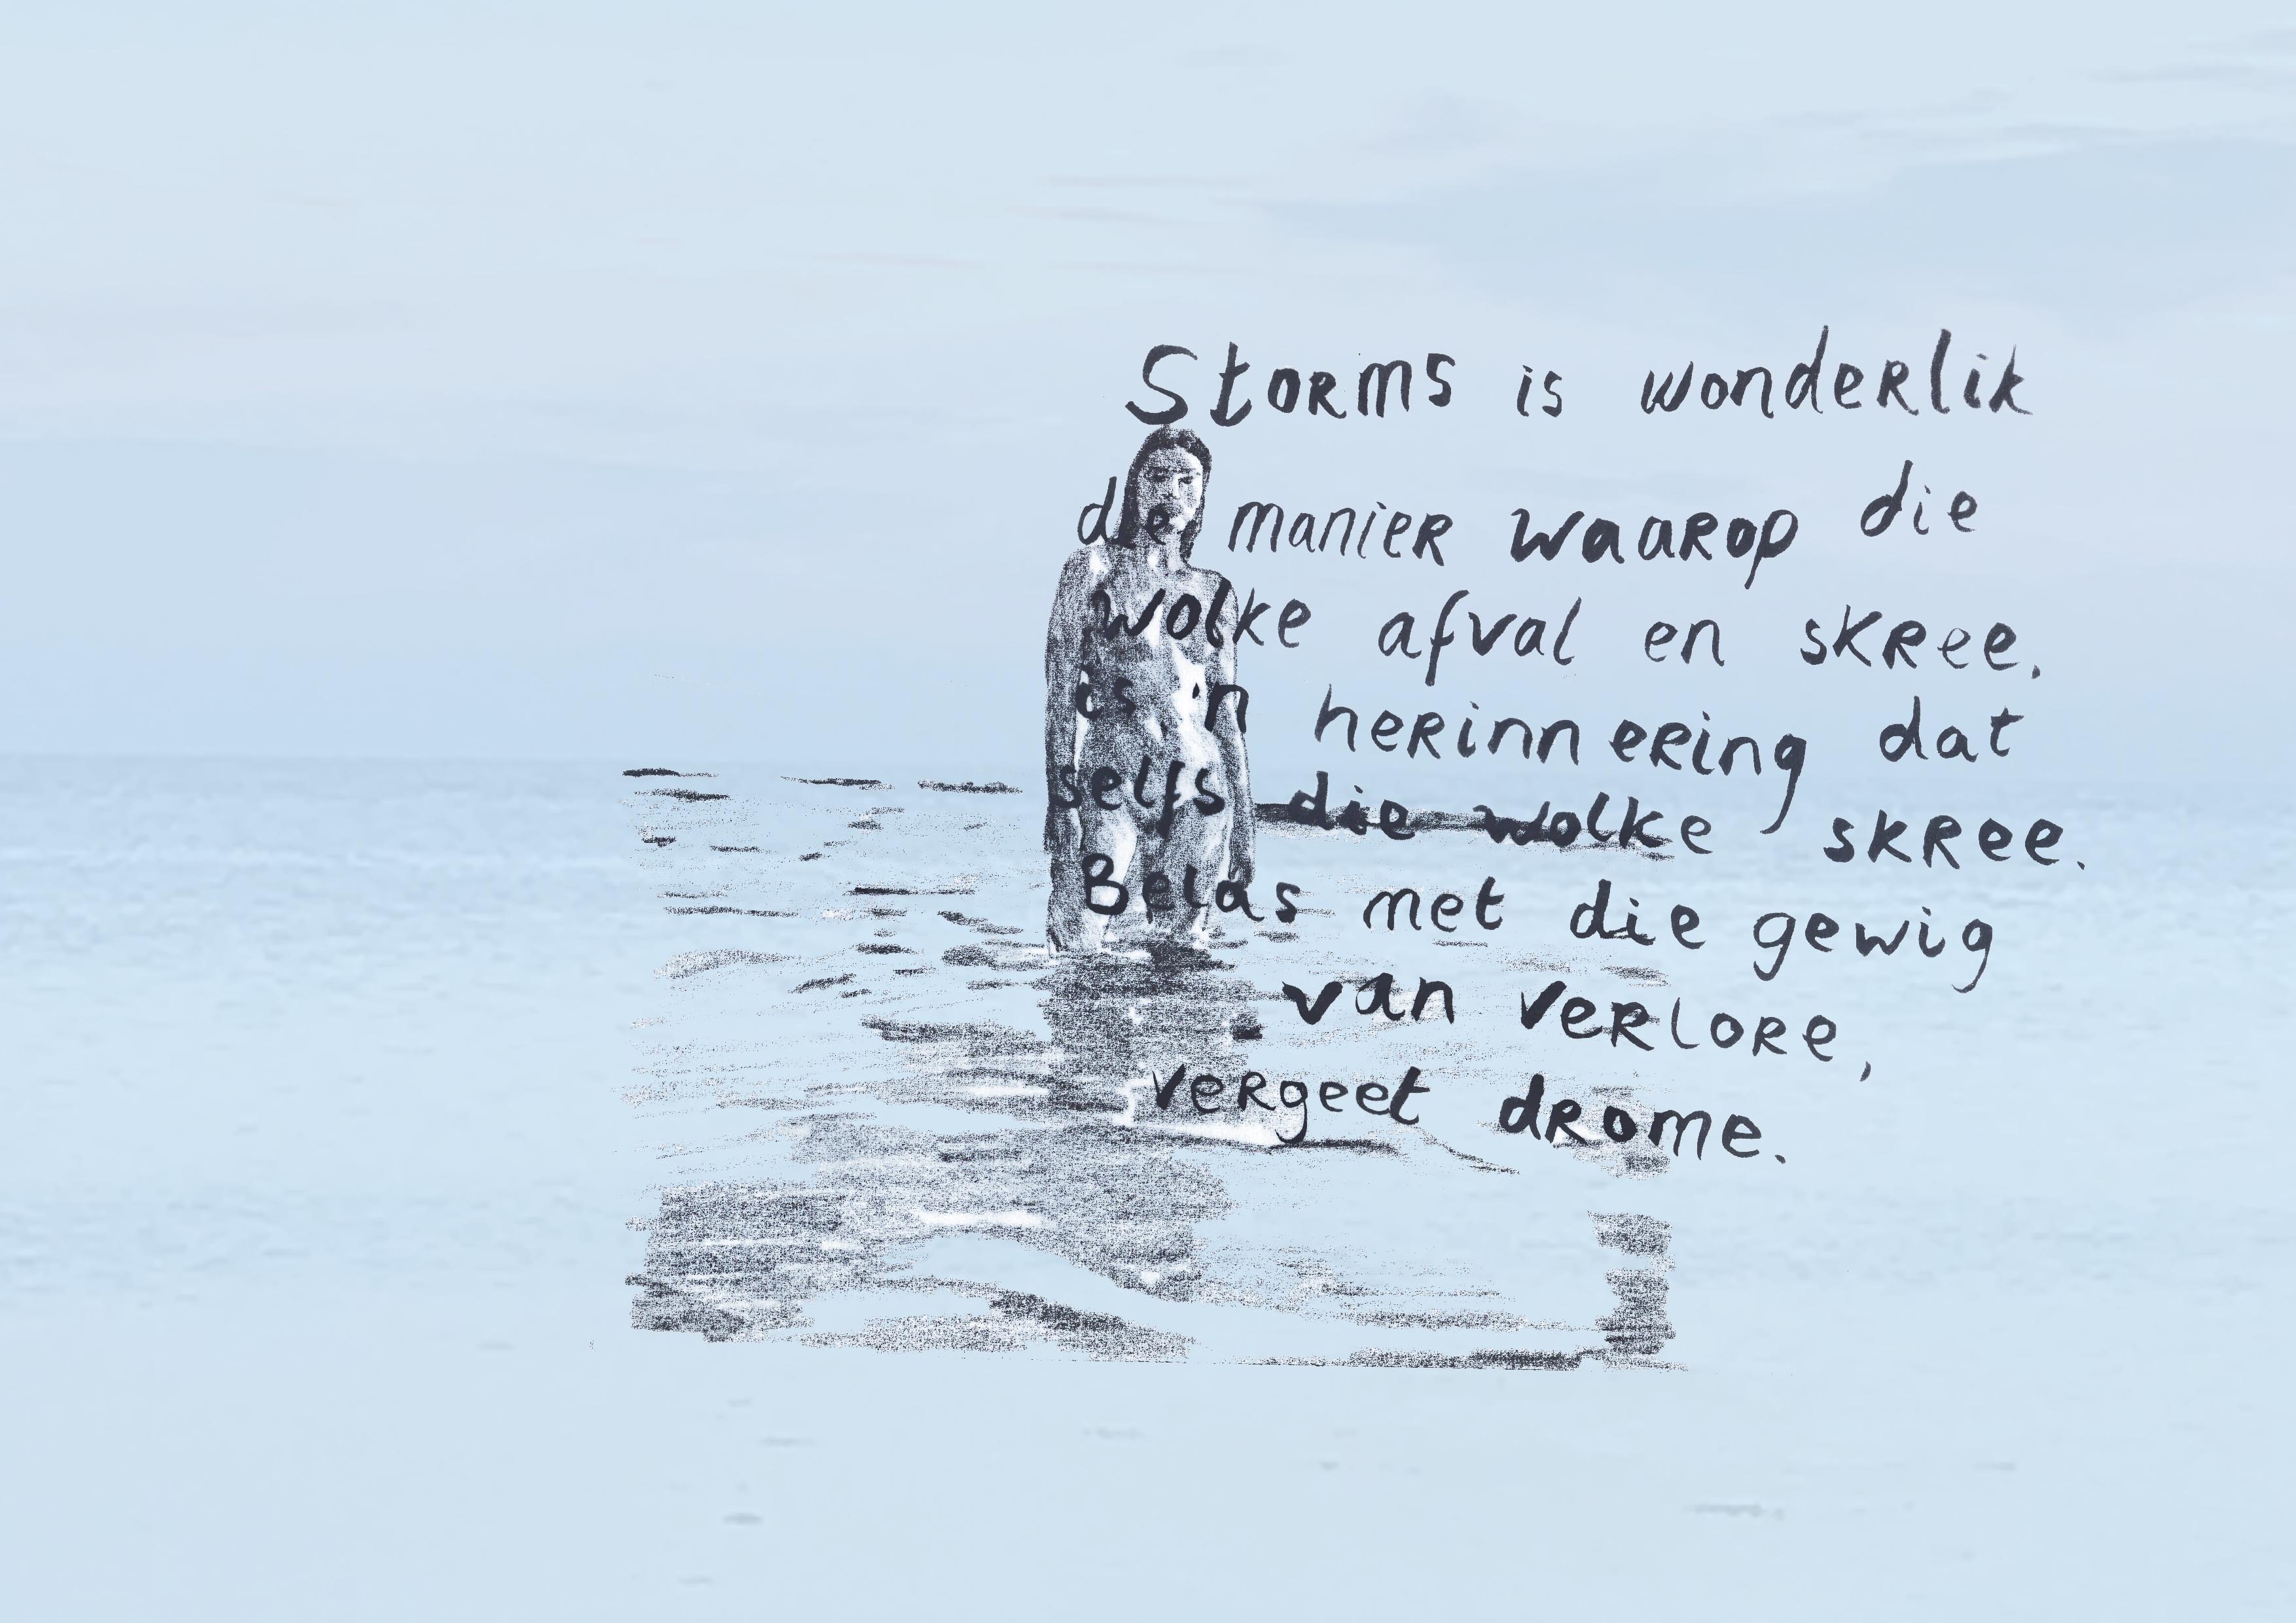 Storms is wonderlik
die manier waarop die
wolke afval en skree.
is 'n herinnering dat
selfs die wolke skree.
Belas met die gewig
van verlore,
vergeet drome.